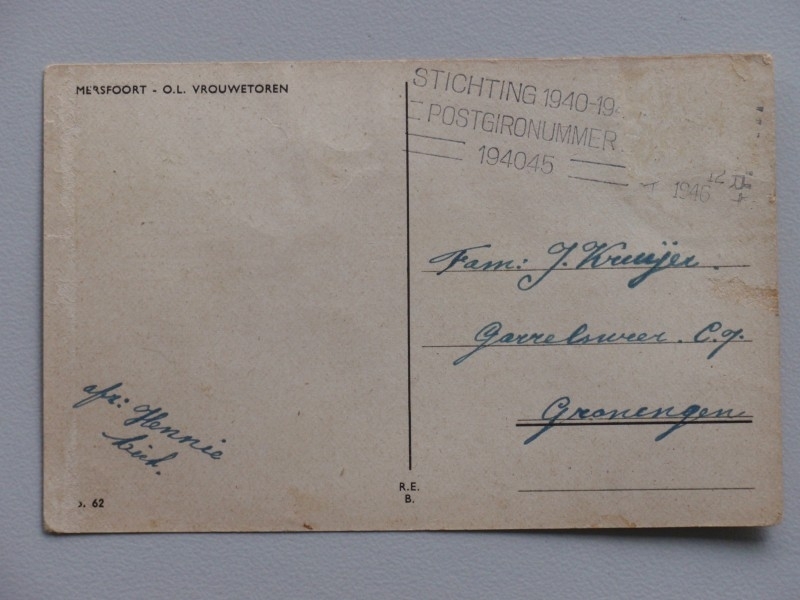 MERSFOORT - O.L. VROUWETOREN
STICHTING 1940-19
POSTGIRONUMMER
194045
1946
Fam: J. Kruijer.
Garrelsweer. C.g.
Gronengen
afz: Hennie
62
R.E.
B.